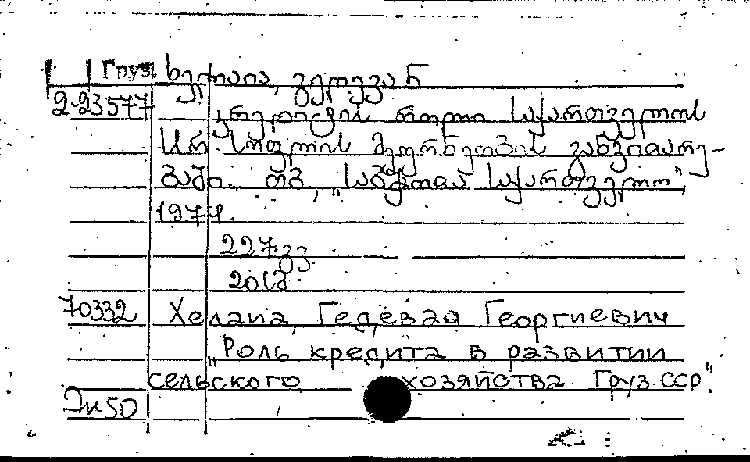 Груз. ხელაია, გედევან
2-23577 კრედიტის როლი საქართველოს
სსრ სოფლის მეურნეობის განვითარე-
ბაში. თბ., "საბჭოთა საქართველო",
1971.
227 გვ.
20 სმ
70332 Хелаиа, Гедеван Георгиевич
"Роль кредита в развитии
сельского хозяйства Груз.ССР".
50